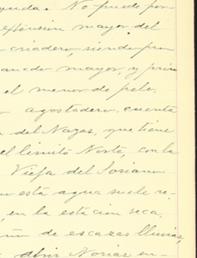 No puede por
extensión mayor del
criadero, siendo pre
mayor, y prin
el menor de pelo.
agostadero, cuenta
del Nazas, que tiene
el limite Norte, con la
Vieja del Soriano
esta agua suele re-
en la estación seca,
de escazas lluvias,
abrir Norias en